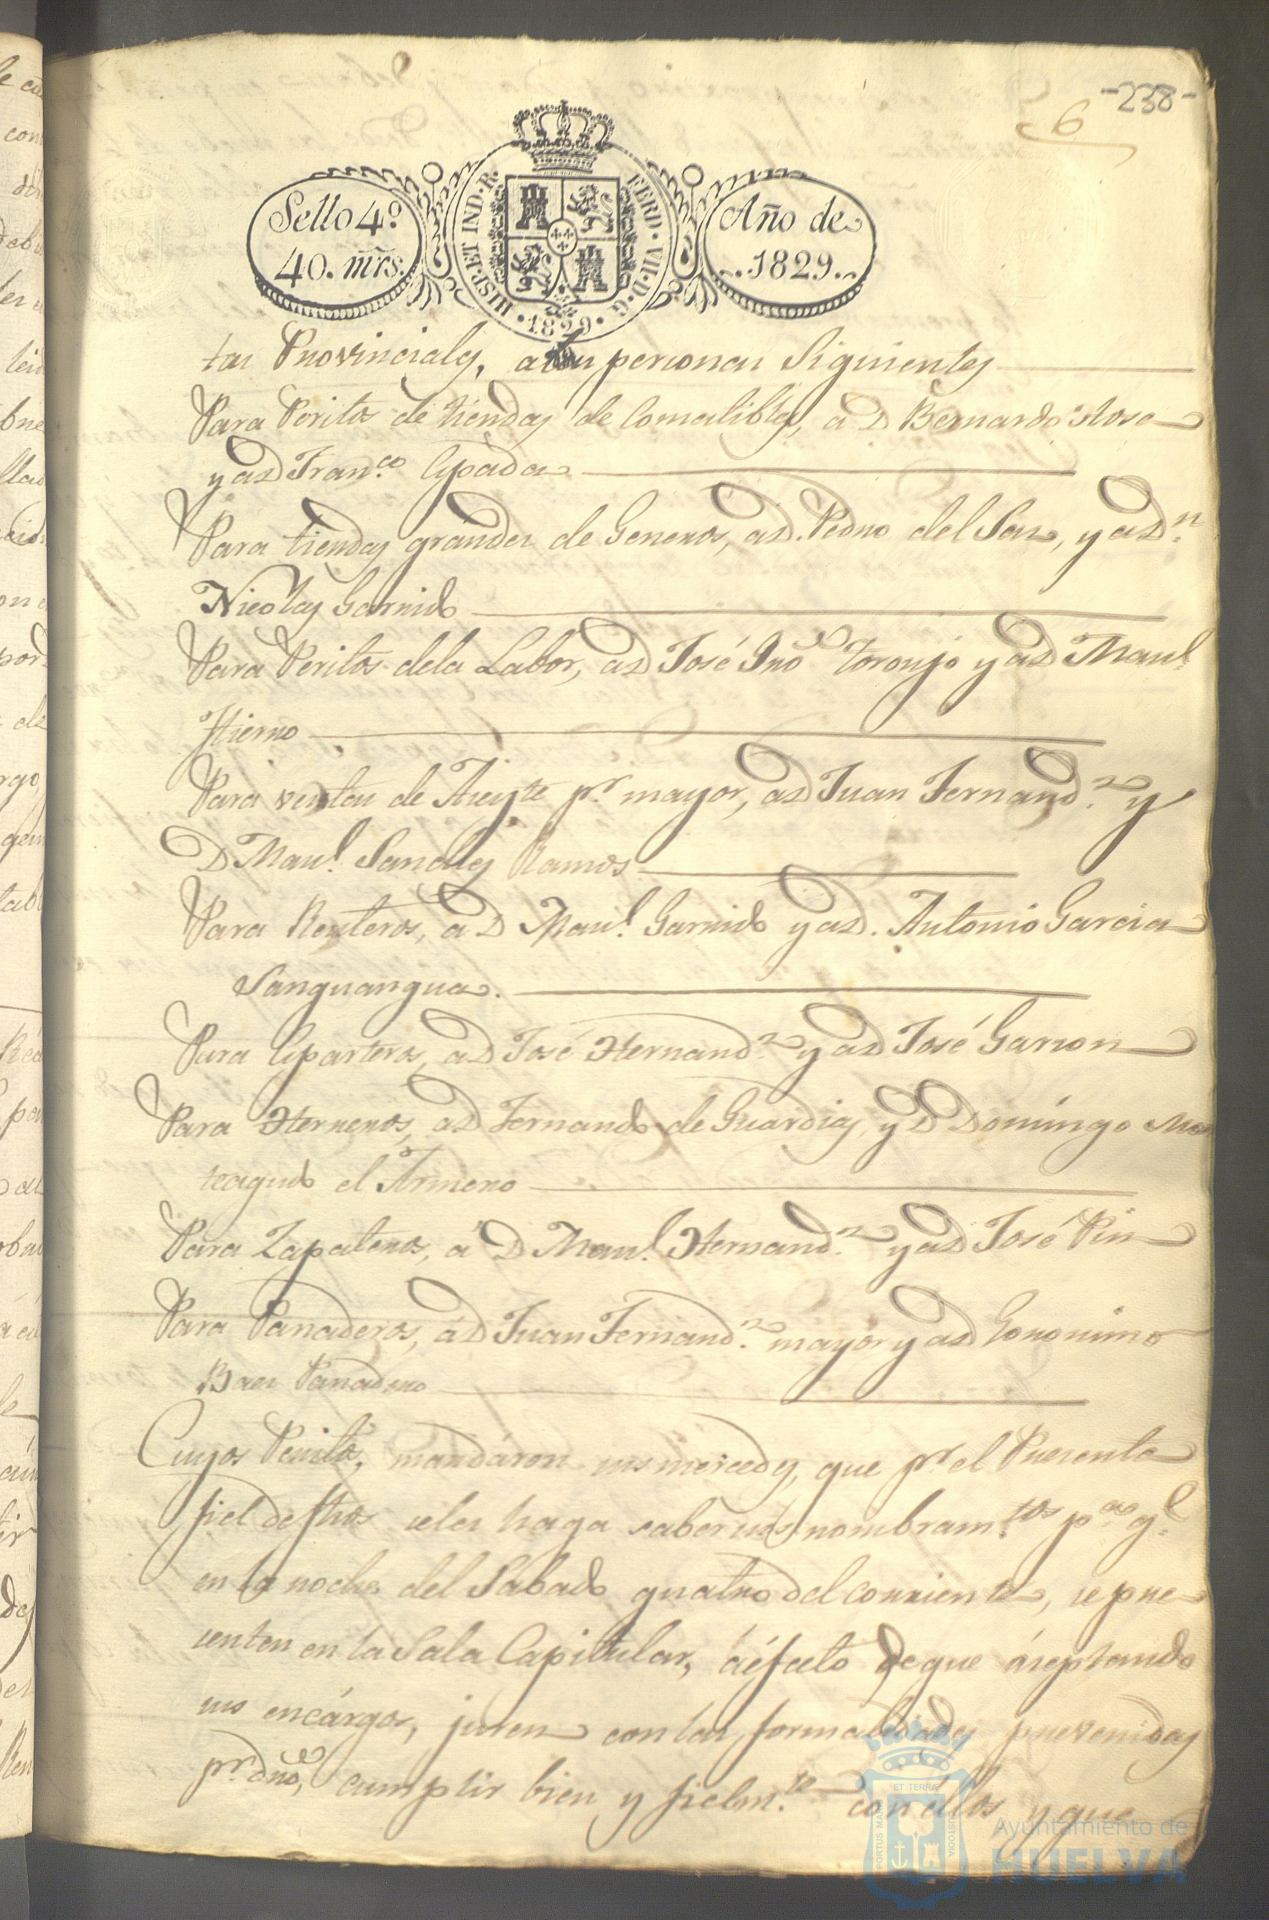 -238-
6
Sello 4º
40. mrs.
HISP. ET IND. R.
FERD. VII. D. G.
1829
Año de
1829.
tas Provinciales, a las personas Siguientes
Para Peritos de tiendas de Comestibles, á D Bernardo
y a D Franco. Espada
Para tiendas grandes de Generos, a D. Pedro del Saz, y a Dn.
Nicolas Garrido
Para Peritos dela Labor, a D José Jno Toronjo y a D Manl.
Hierno
Para ventas de Aseyte pr. mayor, a D Juan Fernandz. y
D Manl. Sanches Ramos
Para Renteros, a D Manl. Garrido y a D. Antonio Garcia
Sanguangua.
Para Esparteros, a D José Hernandz. y a D José Garzon
Para Herreros, a D Fernando de Guardias, y D Domingo Mon
teagudo el Armero
Para Zapateros, á D Manl. Hernandz. y a D José Pin
Para Panaderos, á D Juan Fernandz. mayor y a D Geronimo
Baez Panadero
Cuyos Peritos, mandáron sus mercedes, que pr. el Presente
fiel de fhos se les haga saber sus nombramtos. pa. ql.
en la noche del Sabado quatro del corriente, se pre
senten en la Sala Capitular, á éfecto de que áseptando
sus encárgos, juren con las formalidades prevenidas
pr. dro, cumplir bien y fielmte. con éllos y que
PORTUS MARIS
ET TERRÆ
CUSTODIA
Ayuntamiento de
HUELVA